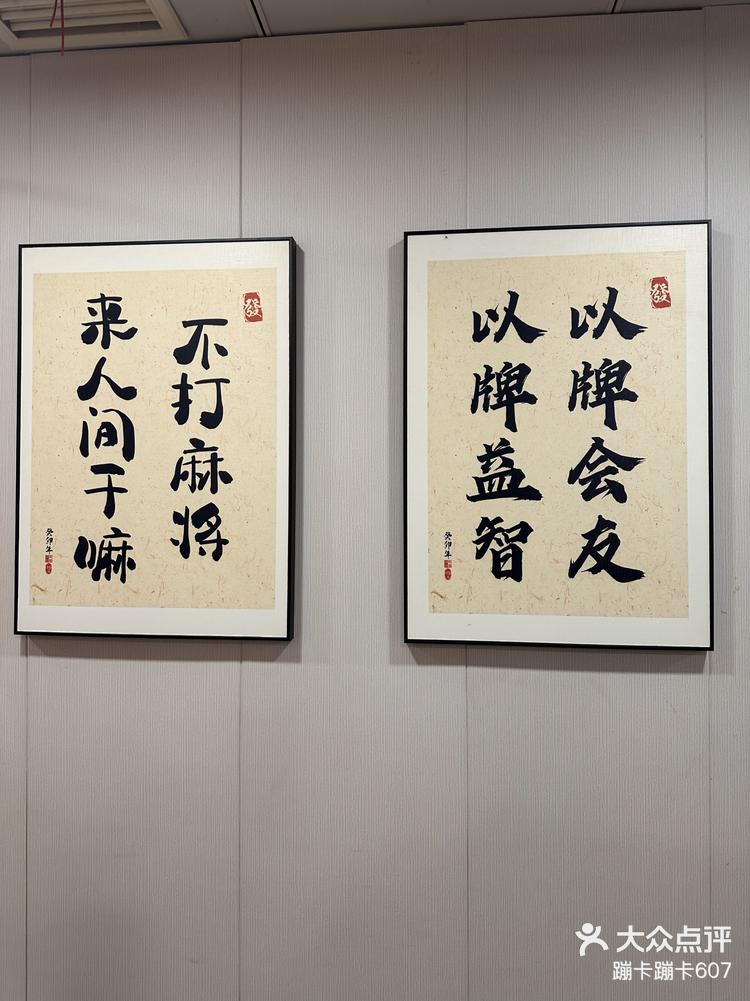 發
不打麻将
来人间干嘛
癸卯年
發
以牌会友
以牌益智
癸卯年
大众点评
蹦卡蹦卡607